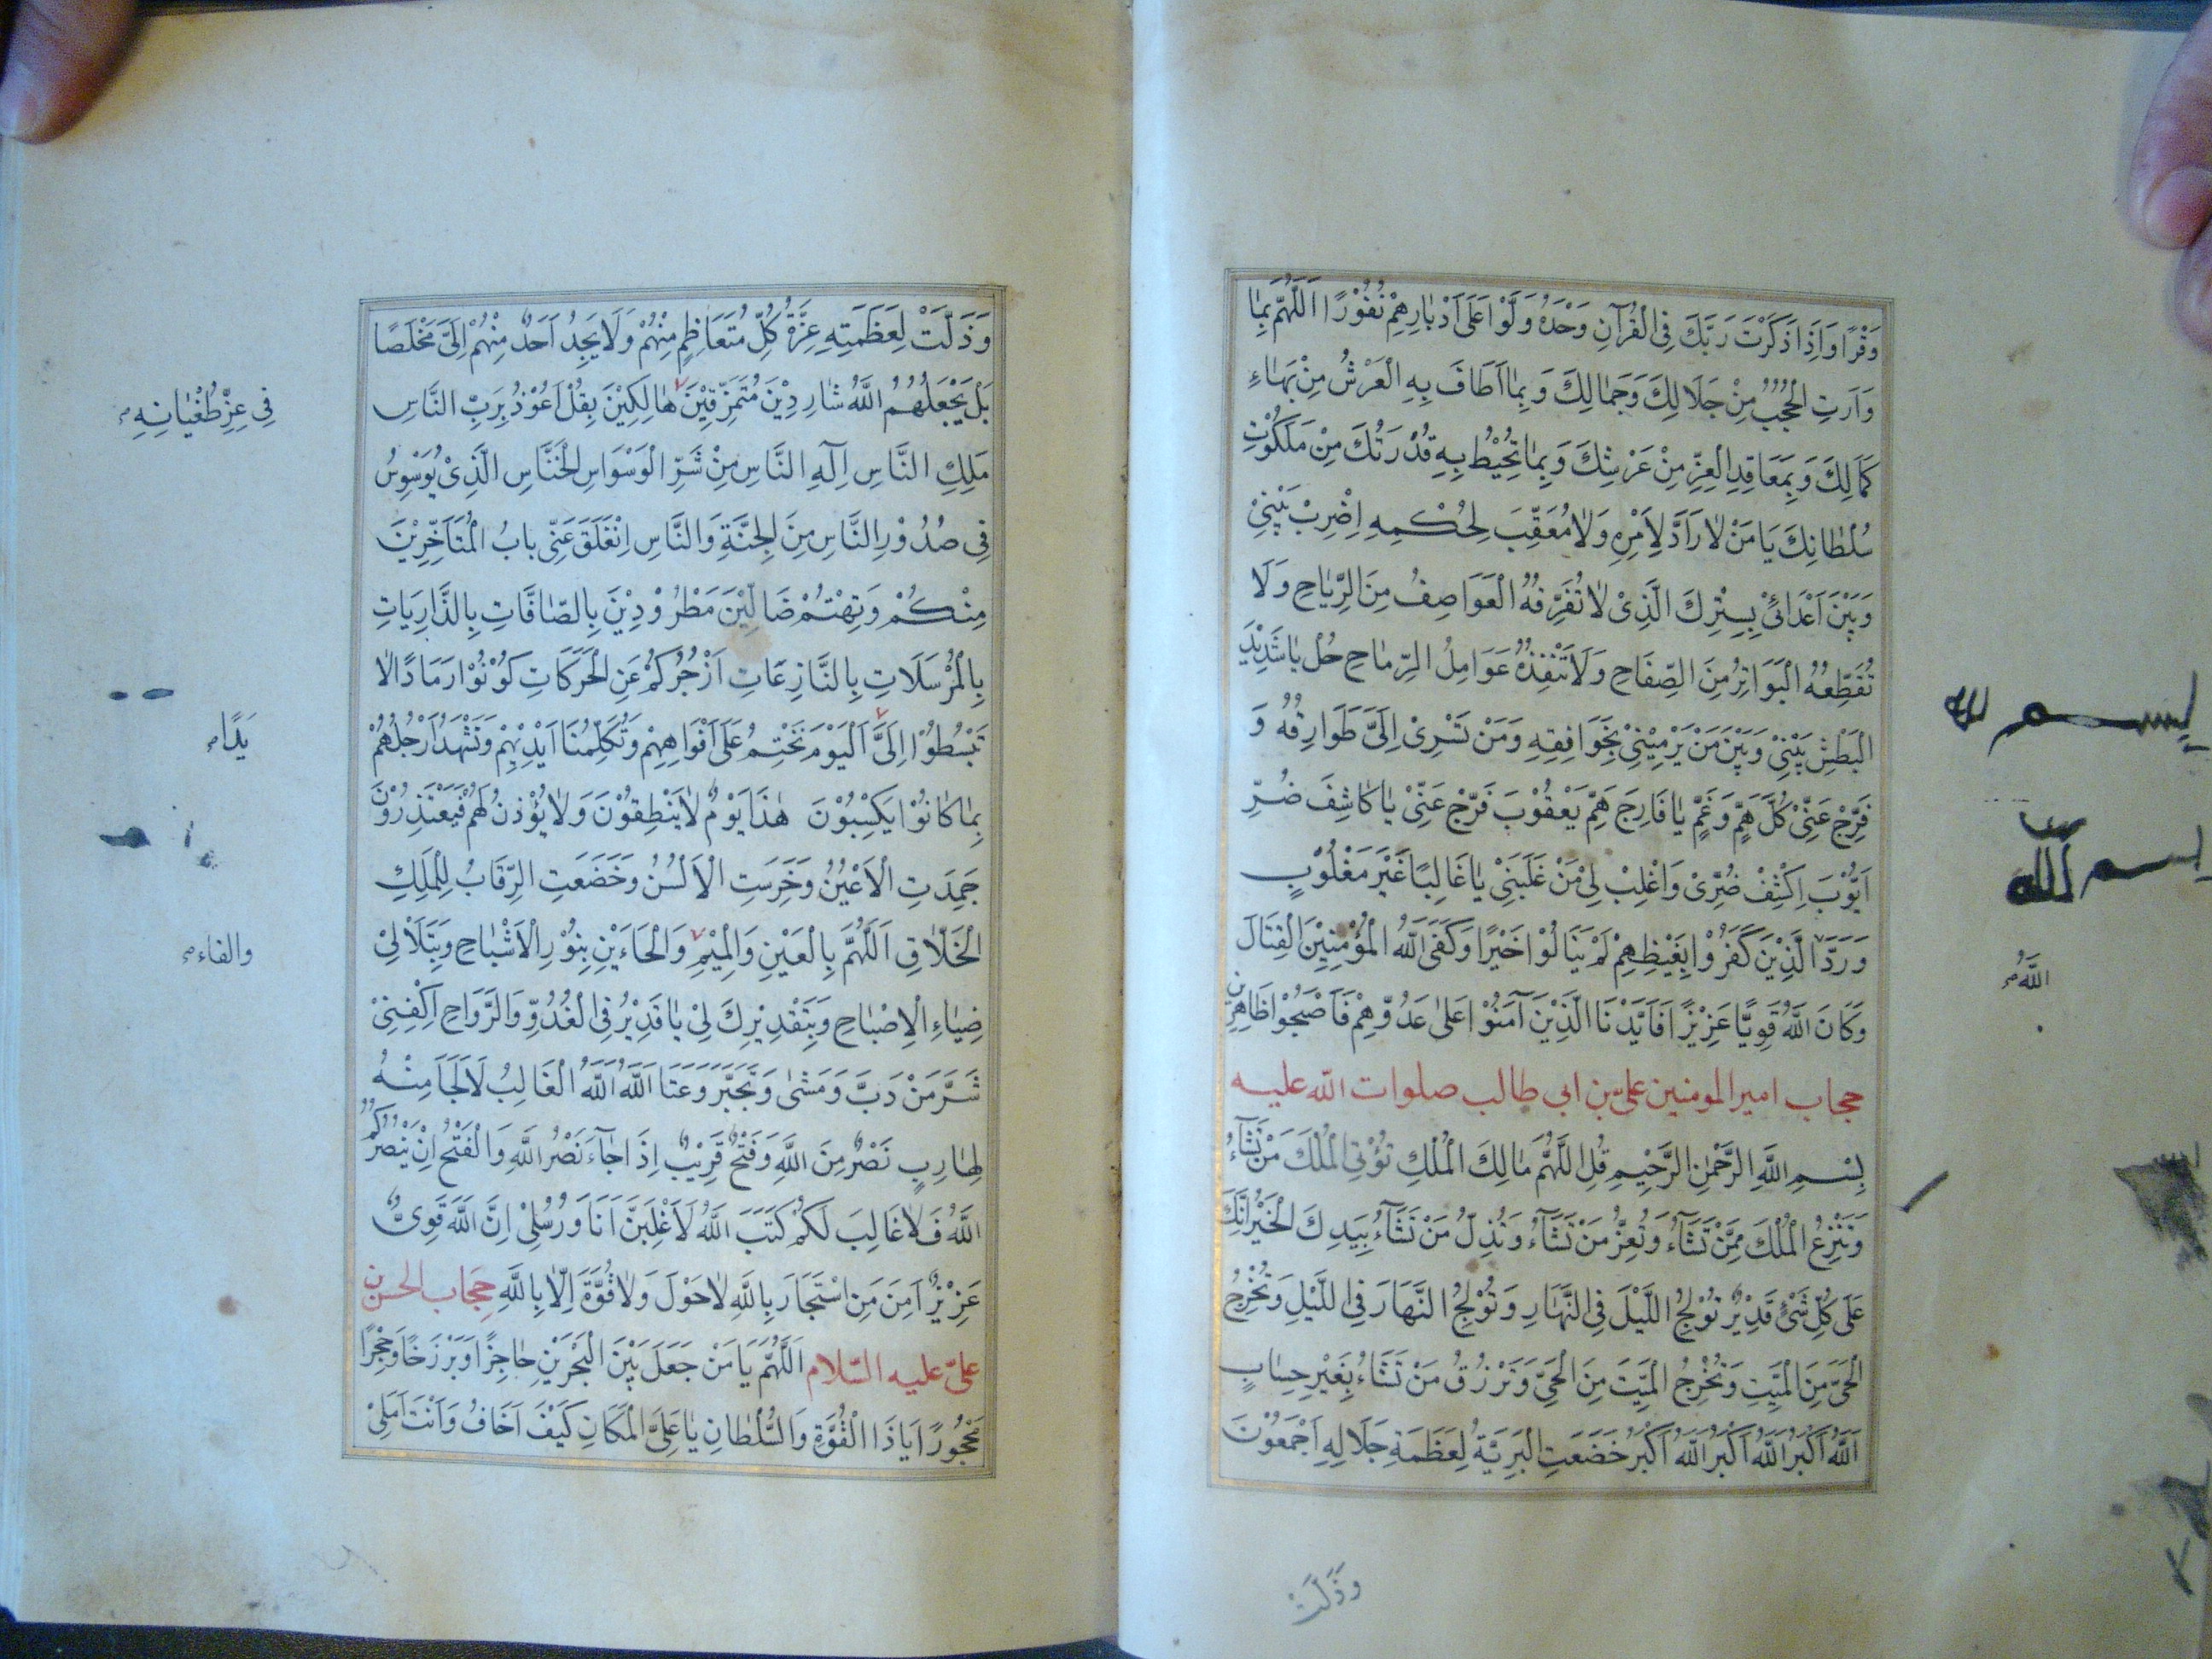 وَقْرًا وَاِذَا ذَكَرْتَ رَبَّكَ فِى الْقُرْآنِ وَحْدَهُ وَلَّوْا عَلَى اَدْبَارِهِمْ نُفُوْرًا اَللّٰهُمَّ بِمَا
وَارَتِ الْحُجُبُ مِنْ جَلَالِكَ وَجَمَالِكَ وَبِمَا اَطَافَ بِهِ الْعَرْشُ مِنْ بَهَاءِ
كَمَالِكَ وَبِمَعَاقِدِ الْعِزِّ مِنْ عَرْشِكَ وَبِمَا تُحِيْطُ بِهِ قُدْرَتُكَ مِنْ مَلَكُوْتِ
سُلْطَانِكَ يَا مَنْ لَا رَادَّ لِاَمْرِهِ وَلَا مُعَقِّبَ لِحُكْمِهِ اِضْرِبْ بَيْنِيْ
وَبَيْنَ اَعْدَائِيْ بِسِتْرِكَ الَّذِىْ لَا تُفَرِّقُهُ الْعَوَاصِفُ مِنَ الرِّيَاحِ وَلَا
تُقَطِّعُهُ الْبَوَاتِرُ مِنَ الصِّفَاحِ وَلَا تَنْفِذُهُ عَوَامِلُ الرِّمَاحِ حُلْ يَا شَدِيْدَ
الْبَطْشِ بَيْنِيْ وَبَيْنَ مَنْ يَرْمِيْنِيْ بِخَوَافِقِهِ وَمَنْ تَسْرِىْ اِلَىَّ طَوَارِقُهُ وَ
فَرِّجْ عَنِّيْ كُلَّ هَمٍّ وَغَمٍّ يَا فَارِجَ هَمِّ يَعْقُوْبَ فَرِّجْ عَنِّيْ يَا كَاشِفَ ضُرِّ
اَيُّوْبَ اِكْشِفْ ضُرِّىْ وَاغْلِبْ لِىْ مَنْ غَلَبَنِىْ يَا غَالِبًا غَيْرَ مَغْلُوْبٍ
وَرَدَّ الَّذِيْنَ كَفَرُوْا بِغَيْظِهِمْ لَمْ يَنَالُوْا خَيْرًا وَكَفَى اللّٰهُ الْمُؤْمِنِيْنَ الْقِتَالَ
وَكَانَ اللّٰهُ قَوِيًّا عَزِيْزًا فَاَيَّدْنَا الَّذِيْنَ آمَنُوْا عَلَى عَدُوِّهِمْ فَاَصْبَحُوْا ظَاهِرِيْنَ
حجاب امير المومنين علىّ بن ابى طالب صلوات الله عليه
بِسْمِ اللّٰهِ الرَّحْمٰنِ الرَّحِيْمِ قُلِ اللّٰهُمَّ مَالِكَ الْمُلْكِ تُؤْتِى الْمُلْكَ مَنْ تَشَآءُ
وَتَنْزِعُ الْمُلْكَ مِمَّنْ تَشَآءُ وَتُعِزُّ مَنْ تَشَآءُ وَتُذِلُّ مَنْ تَشَآءُ بِيَدِكَ الْخَيْرُ اِنَّكَ
عَلَى كُلِّ شَىْءٍ قَدِيْرٌ تُوْلِجُ اللَّيْلَ فِى النَّهَارِ وَتُوْلِجُ النَّهَارَ فِى اللَّيْلِ وَتُخْرِجُ
الْحَىَّ مِنَ الْمَيِّتِ وَتُخْرِجُ الْمَيِّتَ مِنَ الْحَىِّ وَتَرْزُقُ مَنْ تَشَاءُ بِغَيْرِ حِسَابٍ
اَللّٰهُ اَكْبَرُ اَللّٰهُ اَكْبَرُ اَللّٰهُ اَكْبَرُ خَضَعَتِ الْبَرِيَّةُ لِعَظَمَةِ جَلَالِهِ اَجْمَعُوْنَ
وَذَلَّتْ
بسم الله
بسم الله
اللّٰهُ
وَذَلَّتْ لِعَظَمَتِهِ عِزَّةُ كُلِّ مُتَعَاظِمٍ مِنْهُمْ وَلَا يَجِدُ اَحَدٌ مِنْهُمْ اِلَىَّ مَخْلَصًا
بَلْ يَجْعَلُهُمُ اللّٰهُ شَارِدِيْنَ مُتَمَزِّقِيْنَ هَالِكِيْنَ بِقُلْ اَعُوْذُ بِرَبِّ النَّاسِ
مَلِكِ النَّاسِ اِلَهِ النَّاسِ مِنْ شَرِّ الْوَسْوَاسِ الْخَنَّاسِ الَّذِىْ يُوَسْوِسُ
فِى صُدُوْرِ النَّاسِ مِنَ الْجِنَّةِ وَالنَّاسِ اِنْغَلَقَ عَنِّى بَابُ الْمُتَاَخِّرِيْنَ
مِنْكُمْ وَتِهْتُمْ ضَالِّيْنَ مَطْرُوْدِيْنَ بِالصَّافَّاتِ بِالذَّارِيَاتِ
بِالْمُرْسَلَاتِ بِالنَّازِعَاتِ اَزْجُرُكُمْ عَنِ الْحَرَكَاتِ كُوْنُوْا رَمَادًا لَا
تَبْسُطُوْا اِلَىَّ اَلْيَوْمَ نَخْتِمُ عَلَى اَفْوَاهِهِمْ وَتُكَلِّمُنَا اَيْدِيْهِمْ وَتَشْهَدُ اَرْجُلُهُمْ
بِمَا كَانُوْا يَكْسِبُوْنَ هٰذَا يَوْمٌ لَا يَنْطِقُوْنَ وَلَا يُؤْذَنُ لَهُمْ فَيَعْتَذِرُوْنَ
جَمِدَتِ الْاَعْيُنُ وَخَرِسَتِ الْاَلْسُنُ وَخَضَعَتِ الرِّقَابُ لِلْمَلِكِ
الْخَلَّاقِ اَللّٰهُمَّ بِالْعَيْنِ وَالْمِيْمِ وَالْحَاءَيْنِ بِنُوْرِ الْاَشْبَاحِ وَبِتَلَأْلُئِ
ضِيَاءِ الْاِصْبَاحِ وَبِتَقْدِيْرِكَ لِىْ يَا قَدِيْرُ فِى الْغُدُوِّ وَالرَّوَاحِ اِكْفِنِىْ
شَرَّ مَنْ دَبَّ وَمَشَى وَتَجَبَّرَ وَعَتَا اَللّٰهُ اَللّٰهُ الْغَالِبُ لَا مَلْجَاَ مِنْهُ
لِهَارِبٍ نَصْرٌ مِنَ اللّٰهِ وَفَتْحٌ قَرِيْبٌ اِذَا جَآءَ نَصْرُ اللّٰهِ وَالْفَتْحُ اِنْ يَنْصُرْكُمُ
اللّٰهُ فَلَا غَالِبَ لَكُمْ كَتَبَ اللّٰهُ لَاَغْلِبَنَّ اَنَا وَرُسُلِىْ اِنَّ اللّٰهَ قَوِىٌّ
عَزِيْزٌ اَمِنَ مَنِ اسْتَجَارَ بِاللّٰهِ لَا حَوْلَ وَلَا قُوَّةَ اِلَّا بِاللّٰهِ حِجَاب الحسن بن
علىّ عليه السّلام اَللّٰهُمَّ يَا مَنْ جَعَلَ بَيْنَ الْبَحْرَيْنِ حَاجِزًا وَبَرْزَخًا وَحِجْرًا
مَحْجُوْرًا يَا ذَا الْقُوَّةِ وَالسُّلْطَانِ يَا عَلِىَّ الْمَكَانِ كَيْفَ اَخَافُ وَاَنْتَ اَمَلِىْ
فِى عِزِّ طُغْيَانِهِ
يَدًا
والفاء